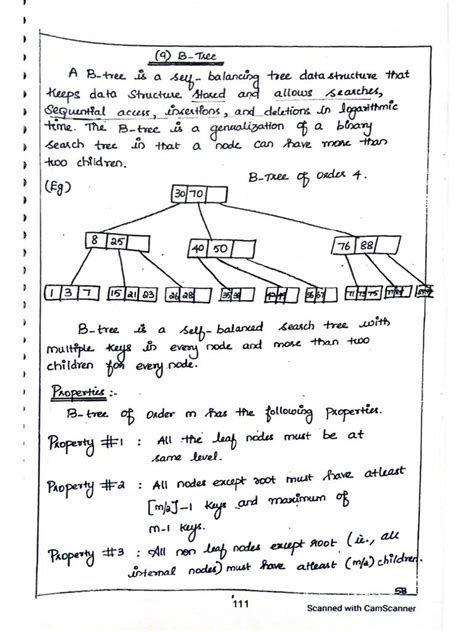 (9) B-Tree
A B-tree is a self-balancing tree data structure that
keeps data structure stored and allows searches,
sequential access, insertions, and deletions in logarithmic
time. The B-tree is a genualization of a binary
search tree in that a node can have more than
two children.
(Eg)
B-Tree of order 4.
30 70
8 25
40 50
76 88
1 3 7
15 21 23
26 28
35 38
56 67
71 73 75
B-tree is a self-balanced search tree with
multiple keys in every node and more than two
children for every node.
Properties :-
B-tree of order m has the following Properties.
Property #1 : All the leaf nodes must be at
same level.
Property #2 : All nodes except root must have atleast
[m/2]-1 keys and maximum of
m-1 keys.
Property #3 : All non leaf nodes except root (i.e., all
internal nodes) must have atleast (m/2) children.
111
Scanned with CamScanner